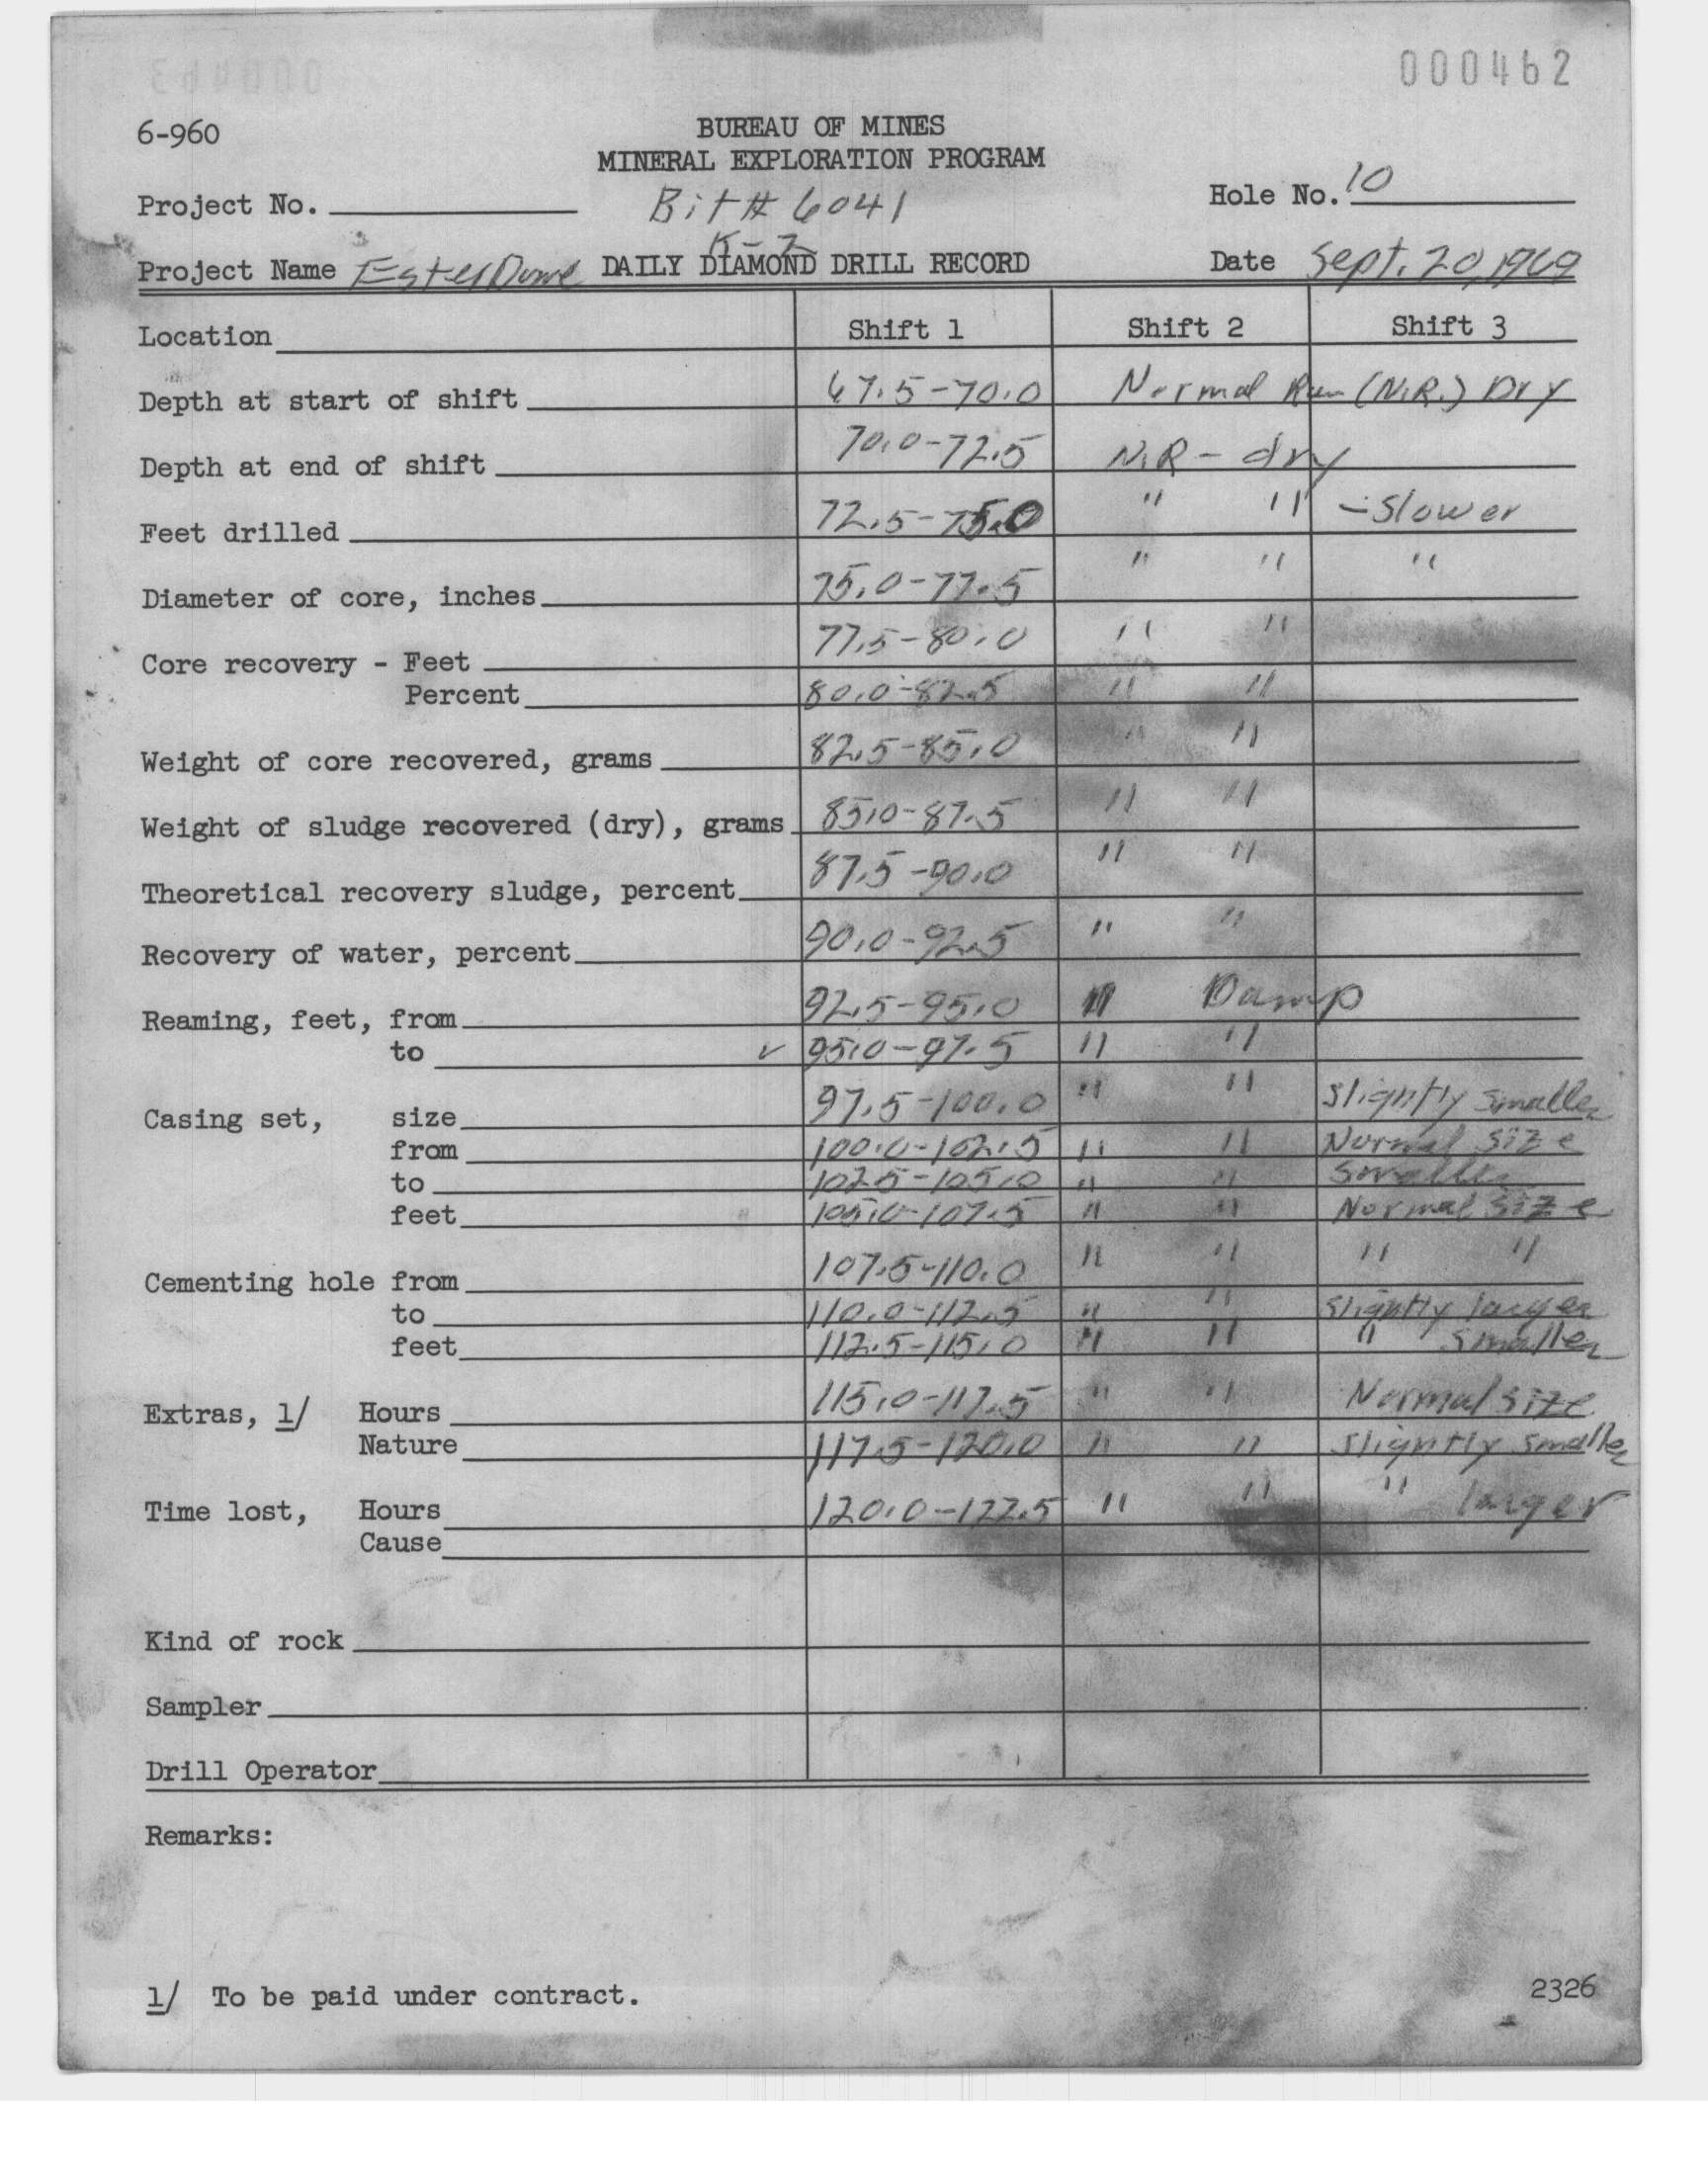 000462
6-960
BUREAU OF MINES
MINERAL EXPLORATION PROGRAM
Project No. Bit# 6041 Hole No. 10
K-Z
Project Name Ester Dome DAILY DIAMOND DRILL RECORD Date Sept. 20, 1969
Location Shift 1 Shift 2 Shift 3
Depth at start of shift 67.5-70.0 Normal Run (N.R.) Dry
Depth at end of shift 70.0-72.5 N.R - dry
Feet drilled 72.5-75.0 " " - Slower
Diameter of core, inches 75.0-77.5 " " "
Core recovery - Feet 77.5-80.0 " "
Percent 80.0-82.5 " "
Weight of core recovered, grams 82.5-85.0 " "
Weight of sludge recovered (dry), grams 85.0-87.5 " "
Theoretical recovery sludge, percent 87.5-90.0 " "
Recovery of water, percent 90.0-92.5 " "
Reaming, feet, from 92.5-95.0 " Damp
to ✓ 95.0-97.5 " "
Casing set, size 97.5-100.0 " " Slightly smaller
from 100.0-102.5 " " Normal size
to 102.5-105.0 " " Smaller
feet 105.0-107.5 " " Normal size
Cementing hole from 107.5-110.0 " " " "
to 110.0-112.5 " " Slightly larger
feet 112.5-115.0 " " " smaller
Extras, 1/ Hours 115.0-117.5 " " Normal size
Nature 117.5-120.0 " " Slightly smaller
Time lost, Hours 120.0-122.5 " " " larger
Cause
Kind of rock
Sampler
Drill Operator
Remarks:
1/ To be paid under contract. 2326